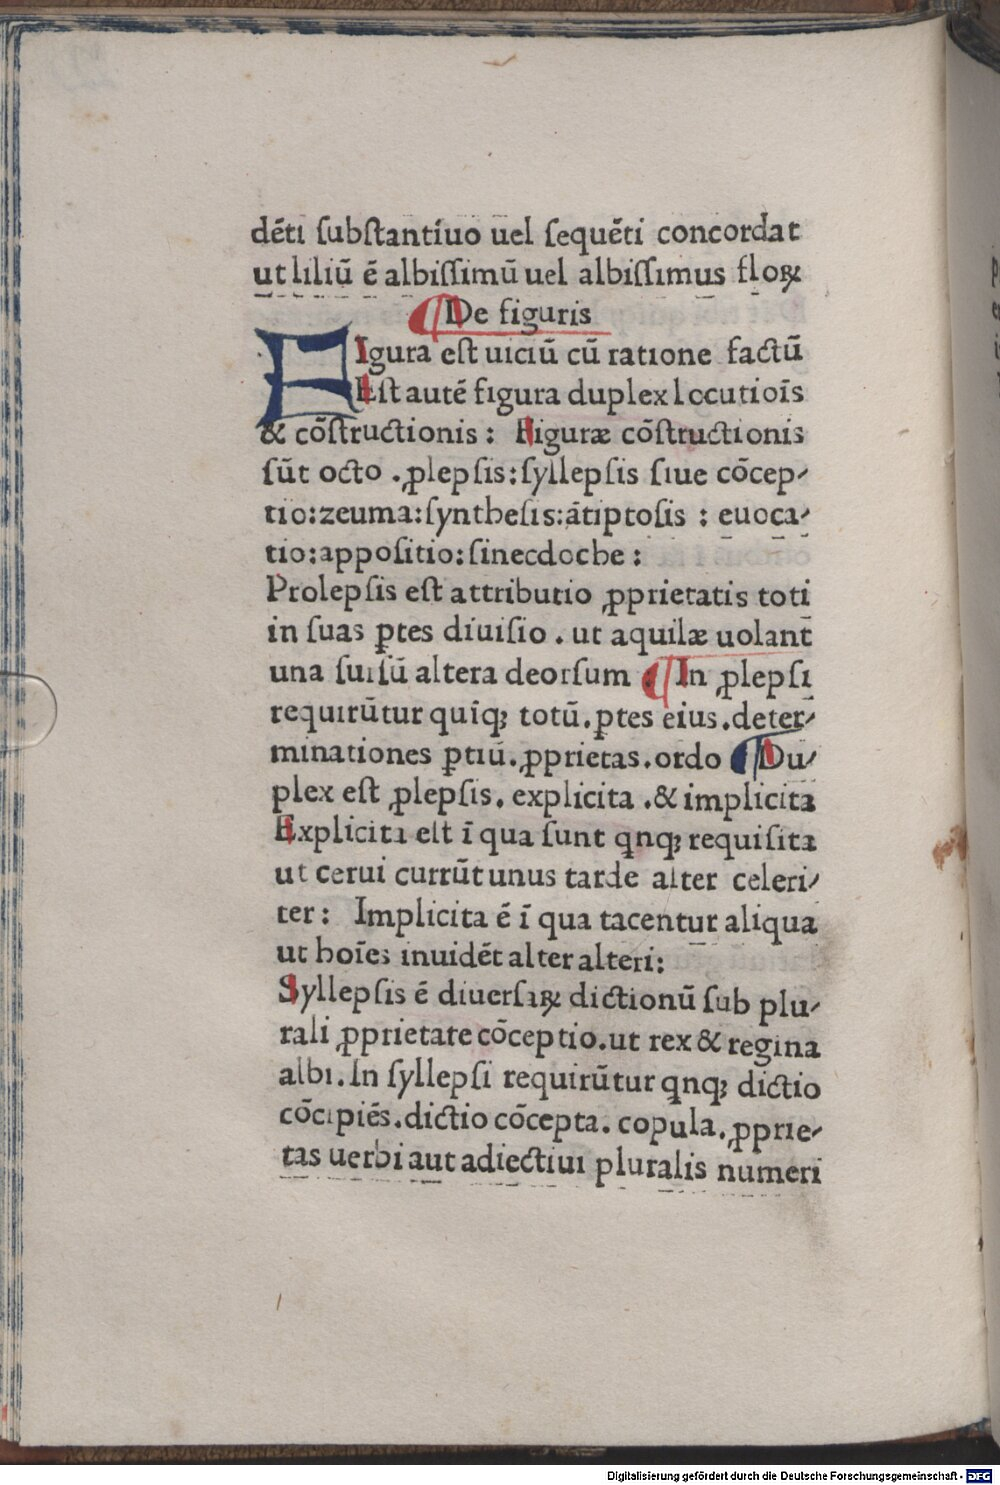 dēti ſubſtantíuo uel ſequēti concordat
ut liliū ē albiſſimū uel albiſſimus floꝝ
¶ De figuris
FIgura eſt uiciū cū ratione factū
Eſt autē figura duplex locutioīs
& cōſtructionis : Figuræ cōſtructionis
ſūt octo . ꝓlepſis:ſyllepſis ſiue cōcep⸗
tio:zeuma:ſyntheſis:ātiptoſis : euoca⸗
tio:appoſitio:ſinecdoche :
Prolepſis eſt attributio ꝓprietatis toti
in ſuas ꝑtes diuiſio . ut aquilæ uolant
una ſurſū altera deorſum . ¶ In ꝓlepſi
requirūtur quīqꝫ totū.ꝑtes eius.deter⸗
minationes ꝑtiū.ꝓprietas.ordo ¶ Du⸗
plex eſt ꝓlepſis. explicita .& implicita
Explicita eſt ī qua ſunt qnqꝫ requiſita
ut cerui currūt unus tarde alter celeri⸗
ter : Implicita ē ī qua tacentur aliqua
ut hoīes inuidēt alter alteri:
Syllepſis ē diuerſaꝝ dictionū ſub plu⸗
rali ꝓprietate cōceptio.ut rex & regina
albi.In ſyllepſi requirūtur qnqꝫ dictio
cōcipiēs.dictio cōcepta. copula.ꝓprie⸗
tas uerbi aut adiectiui pluralis numeri
Digitalisierung gefördert durch die Deutsche Forschungsgemeinschaft - DFG